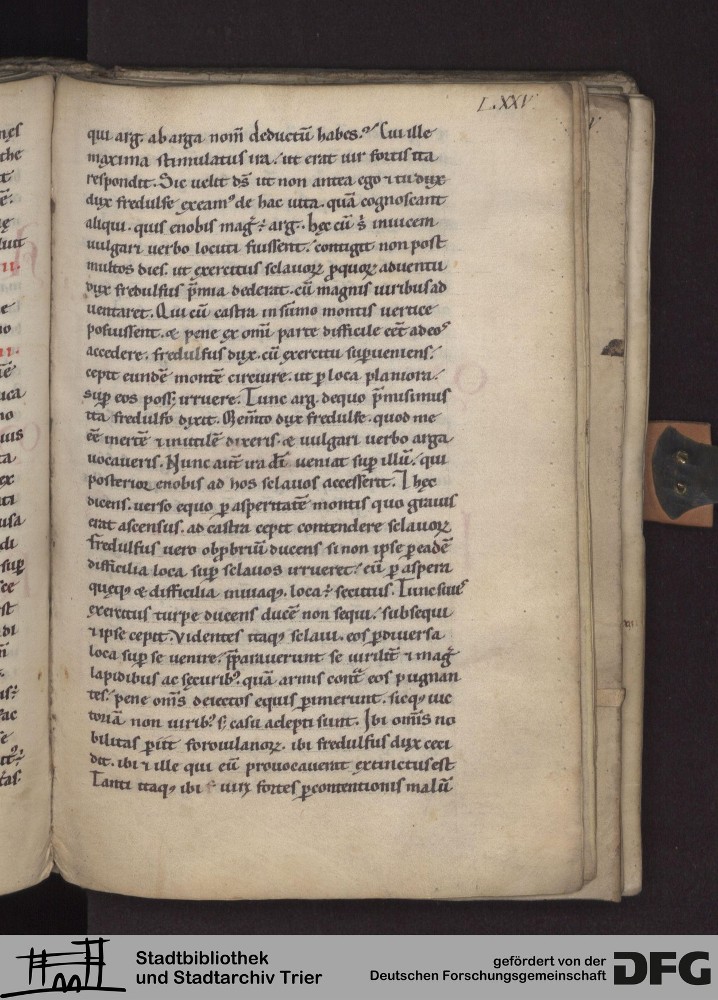 L.XXV
qui arg. ab arga nom̄ deductū habes. Cui ille
maxima stimulatus ira. ut erat uir fortis ita
respondit. Sic uelit d̄s ut non antea ego ⁊ tu dux
dux fredulfe exeam᷒ de hac uita. quā cognoscant
aliqui. quis enobis maḡ arg. hęc cū s̄ inuicem
uulgari uerbo locuti fuissent. contigit non post
multos dies. ut exercitus sclauoꝝ ꝓ quoꝝ aduentu
dux fredulfus p̄mia dederat. cū magnis uiribus ad
uentaret. Qui cū castra in sūmo montis uertice
posuissent. & pene ex omi parte difficile eēt ad eos
accedere. fredulfus dux. cū exercitu suꝑueniens.
cepit eundē montē circuire. ut ꝑ loca planiora.
suꝑ eos poss; irruere. Tunc arg. de quo p̄misimus
ita fredulfo dixit. Mem̄to dux fredulfe. quod me
eē inertē ⁊ inutilē dixeris. & uulgari uerbo arga
uocaueris. Nunc aut̄ ira dī ueniat suꝑ illū. qui
posterior enobis ad hos sclauos accesserit. Ihęc
dicens. uerso equo ꝑ asperitatē montis quo grauis
erat ascensus. ad castra cepit contendere sclauoꝝ
Fredulfus uero obp̄briū ducens si non ipse ꝑ eadē
difficilia loca suꝑ sclauos irrueret. eū ꝑ aspera
quęq; & difficilia inuiaq; loca secutus. Tunc suus
exercitus turpe ducens ducē non sequi. subsequi
⁊ ipse cepit. Videntes itaq; sclaui. eos ꝑ diuersa
loca suꝑ se uenire. p̄parauerunt se uirilit̄ ⁊ maḡ
lapidibus ac securib᷒. quā armis cont̄ eos pugnan
tes. pene om̄s deiectos equis ꝑimerunt. sicq; uic
toriā non uirib᷒ s; casu adepti sunt. Ibi om̄is no
bilitas ꝑiit foroiulanoꝝ. ibi fredulfus dux ceci
dit. ibi ⁊ ille qui eū prouocauerat extinctus est
Tanti itaq; ibi uiri fortes ꝑ contentionis malū
Stadtbibliothek
und Stadtarchiv Trier
gefördert von der
Deutschen Forschungsgemeinschaft
DFG